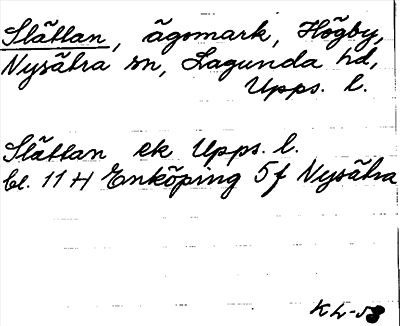 Slättan, ägomark, Högby,
Nysätra sn, Lagunda hd,
Upps. l.
Slättan ek Upps. l.
bl. 11 H Enköping 5 f Nysätra
K L-53